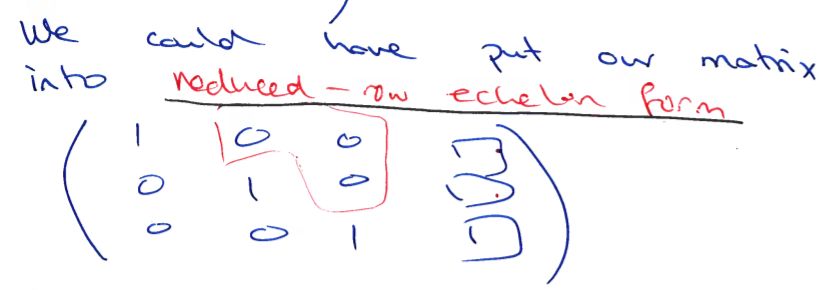 We could have put our matrix
into reduced - row echelon form
1 0 0
0 1 0
0 0 1